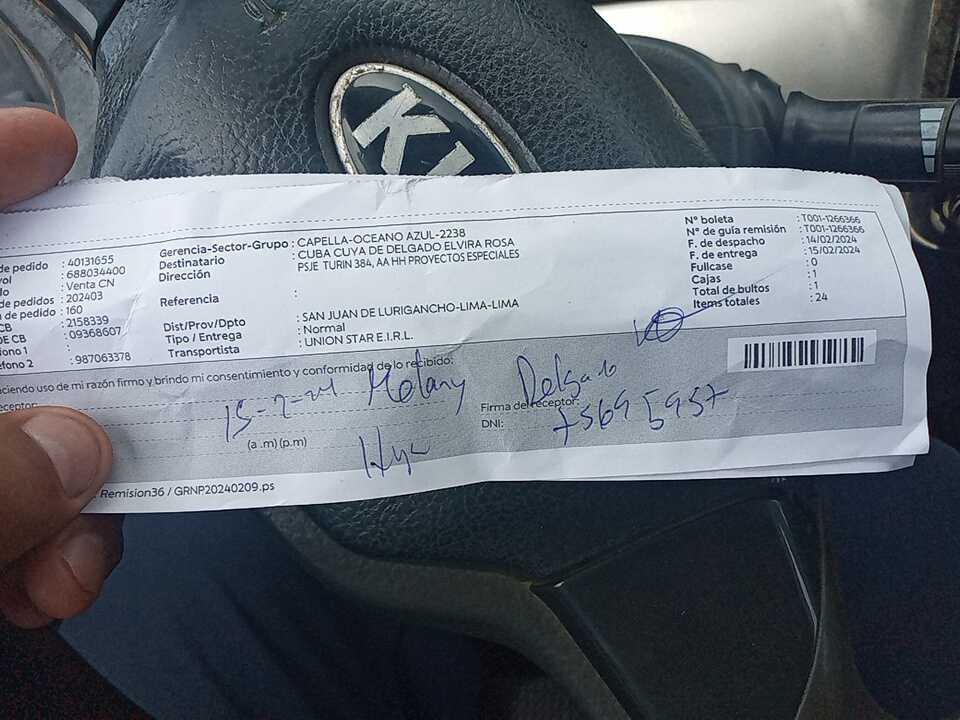 KI
de pedido : 40131655
rol : 688034400
lo : Venta CN
de pedidos : 202403
a de pedido : 160
CB : 2158339
DE CB : 09368607
fono 1
éfono 2 : 987063378
Gerencia-Sector-Grupo : CAPELLA-OCEANO AZUL-2238
Destinatario : CUBA CUYA DE DELGADO ELVIRA ROSA
Dirección PSJE TURIN 384, AA HH PROYECTOS ESPECIALES
Referencia :
Dist/Prov/Dpto : SAN JUAN DE LURIGANCHO-LIMA-LIMA
Tipo / Entrega : Normal
Transportista : UNION STAR E.I.R.L.
N° boleta : T001-1266366
N° de guía remisión : T001-1266366
F. de despacho : 14/02/2024
F. de entrega : 15/02/2024
Fullcase : 0
Cajas : 1
Total de bultos : 1
Items totales : 24
aciendo uso de mi razón firmo y brindo mi consentimiento y conformidad de lo recibido:
receptor:
15-2-24 Melany Delgado
(a .m) (p.m)
Firma del receptor:
DNI: 75695957
Hija
. Remision36 / GRNP20240209.ps